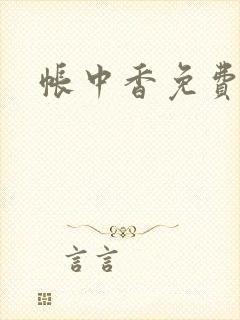 帐中香免費
言言